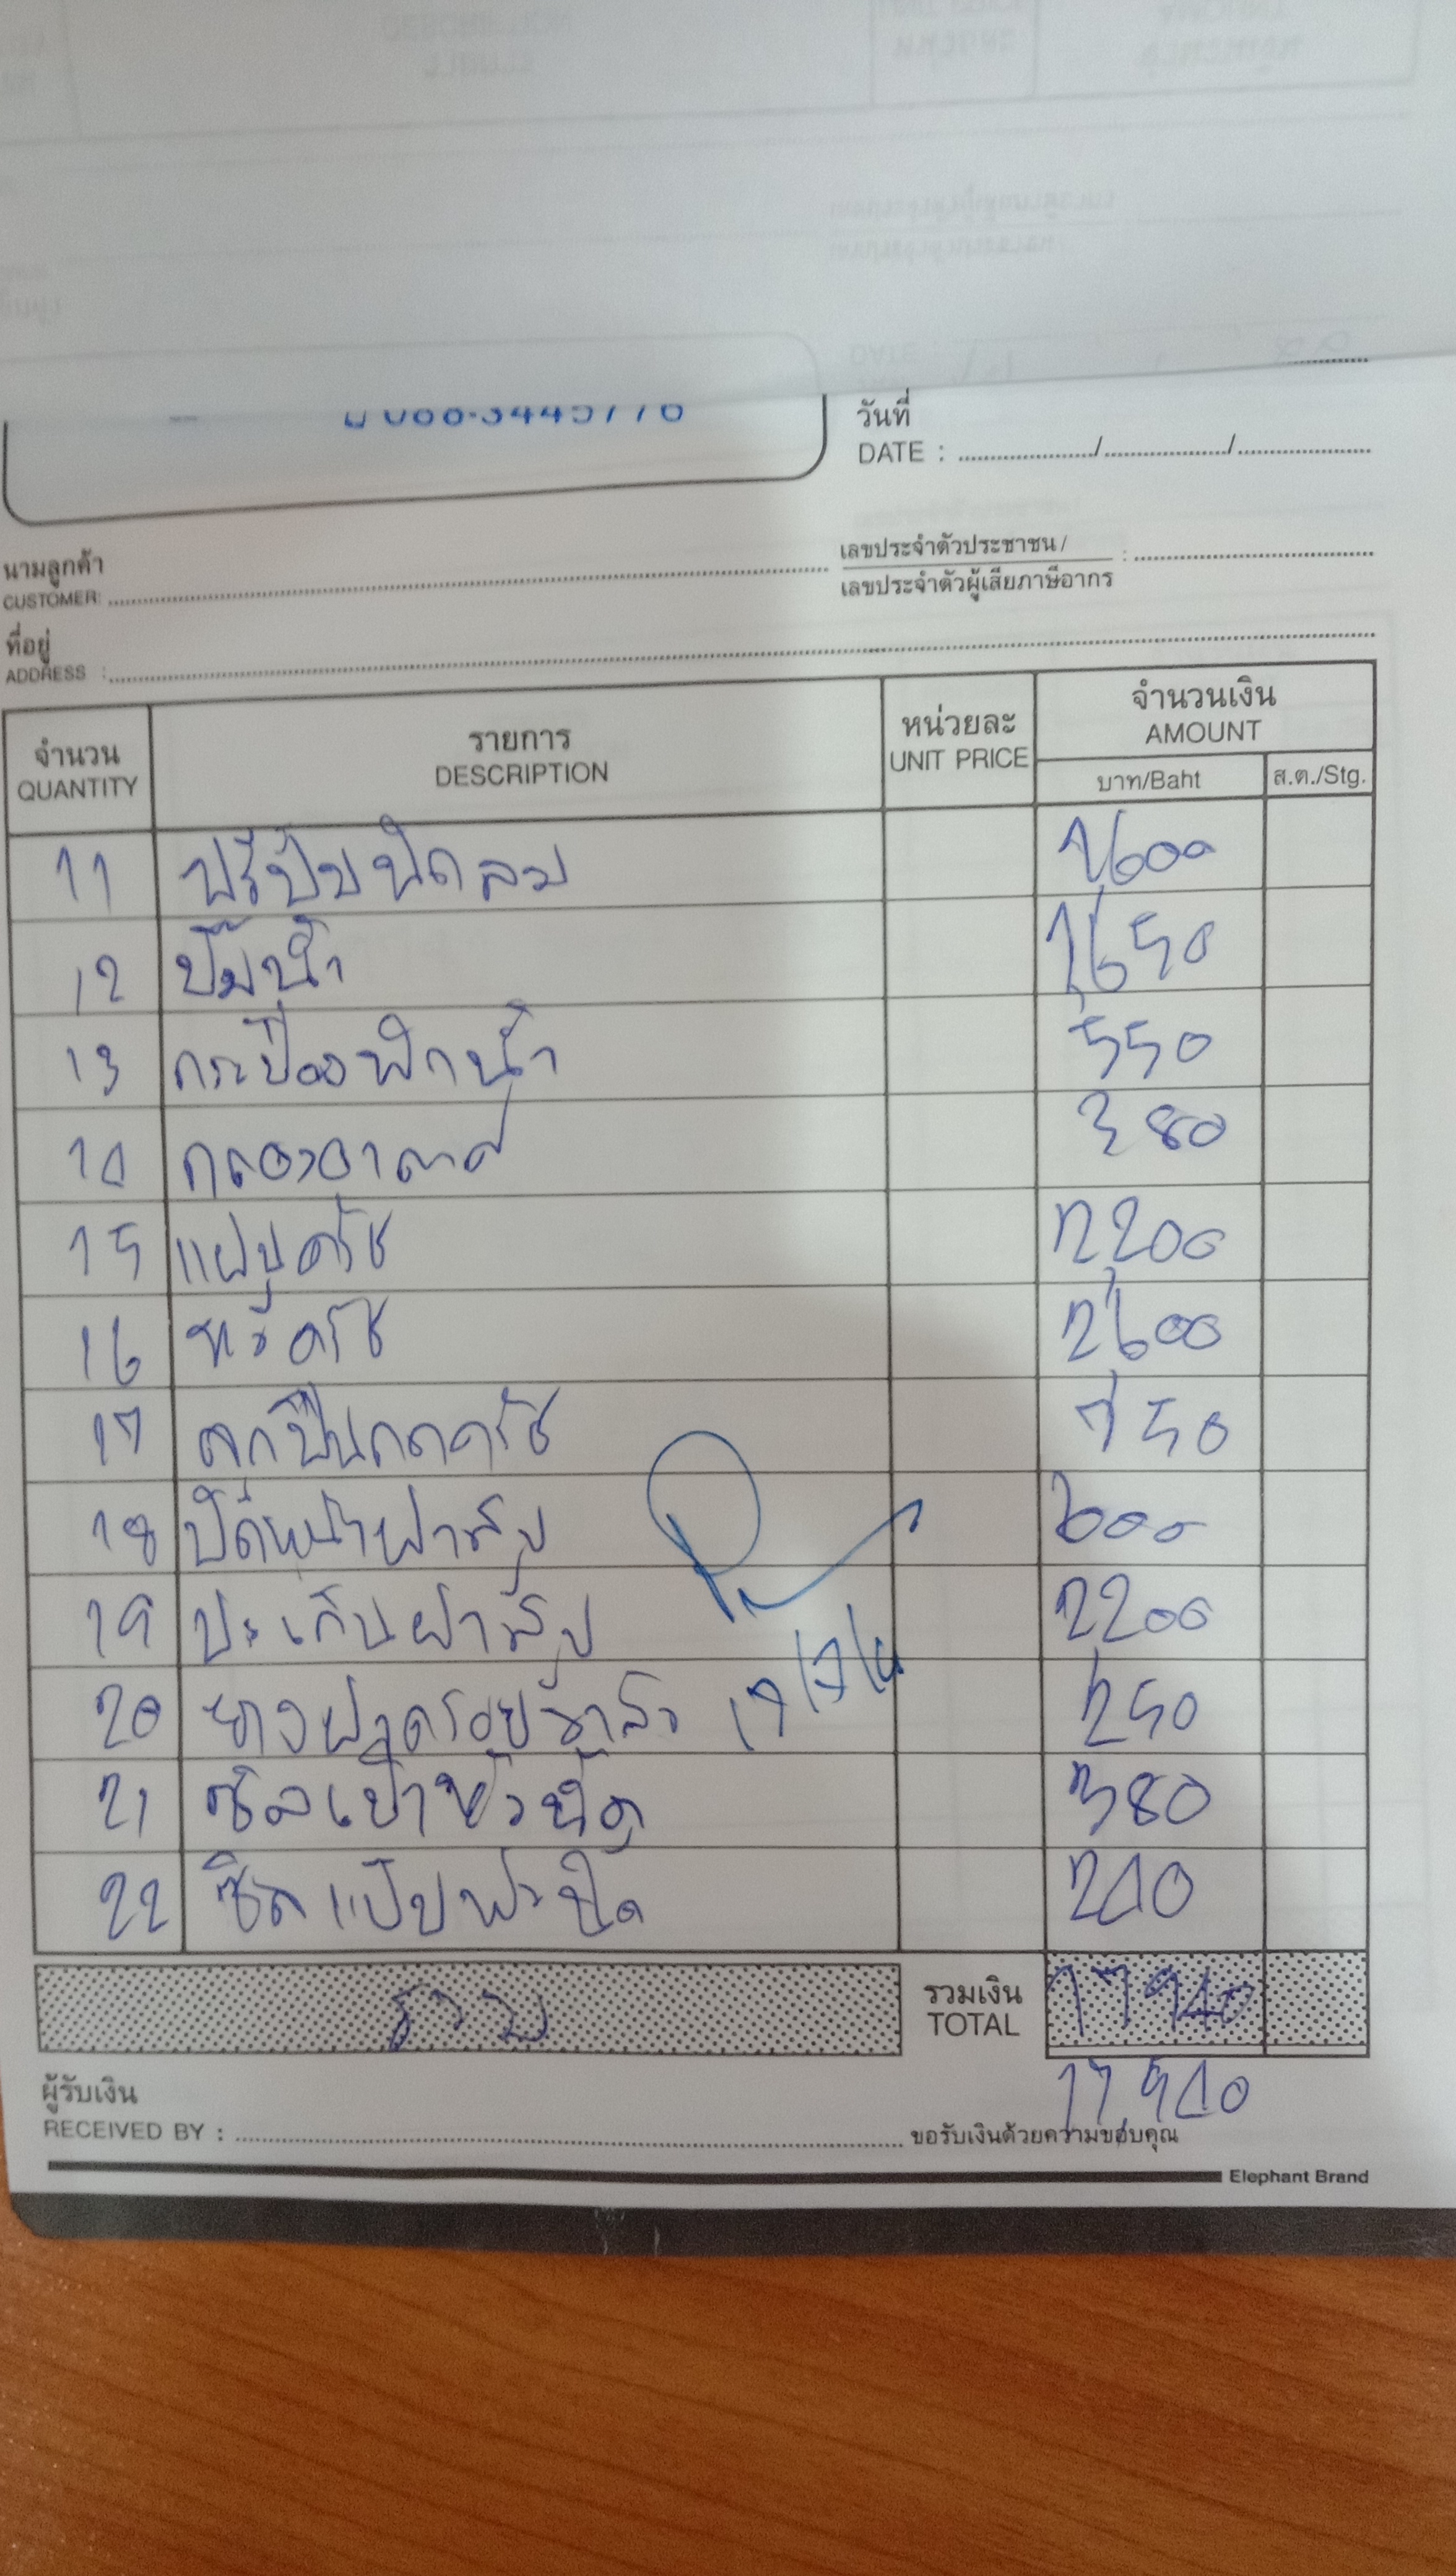 088-3445776
วันที่
DATE : / /
นามลูกค้า
CUSTOMER:
เลขประจำตัวประชาชน /
เลขประจำตัวผู้เสียภาษีอากร :
ที่อยู่
ADDRESS :
จำนวน รายการ หน่วยละ จำนวนเงิน
QUANTITY DESCRIPTION UNIT PRICE AMOUNT
บาท/Baht ส.ต./Stg.
11 ฟรีปั๊มพัดลม 1,600
12 ปั๊มน้ำ 1,650
13 กระป๋องพักน้ำ 550
14 กรองอากาศ 380
15 แผ่นครัช 2,200
16 หวีครัช 2,600
17 ลูกปืนกดครัช 750
18 ปัดหน้าฝาสูบ 600
19 ปะเก็นฝาสูบ 2200
20 ยางฝาครอบวาล์ว 250
21 ซีลเบ้าหัวฉีด 380
22 ซีลแป๊บหัวฉีด 240
รวม รวมเงิน 17940
TOTAL
17,940
ผู้รับเงิน
RECEIVED BY : ขอรับเงินด้วยความขอบคุณ
Elephant Brand